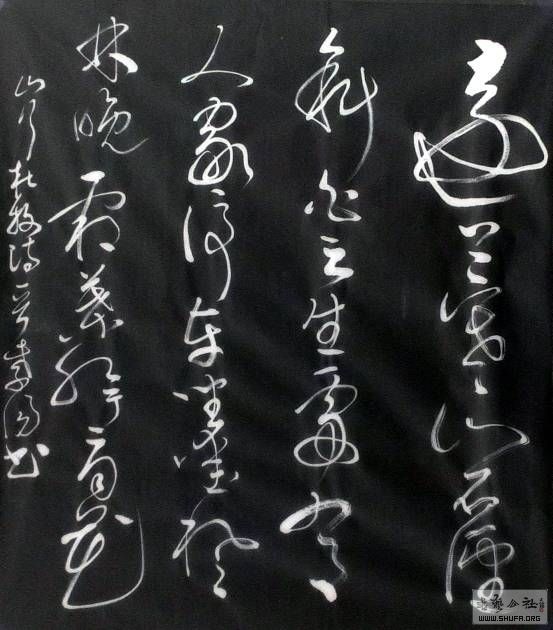 遠上寒山石徑
斜白云生處有
人家停車坐愛楓
林晚霜葉紅於二月花
山行杜牧詩書
書藝公社
WWW.SHUFA.ORG